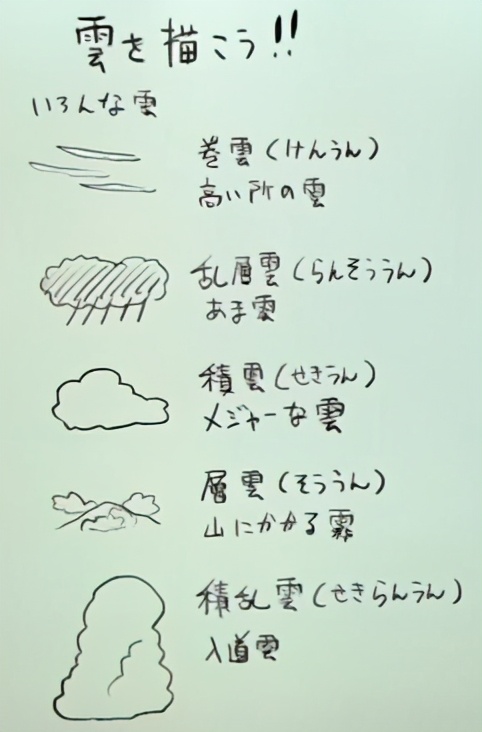 雲を描こう!!
いろんな雲
巻雲(けんうん)
高い所の雲
乱層雲(らんそううん)
あま雲
積雲(せきうん)
メジャーな雲
層雲(そううん)
山にかかる霧
積乱雲(せきらんうん)
入道雲